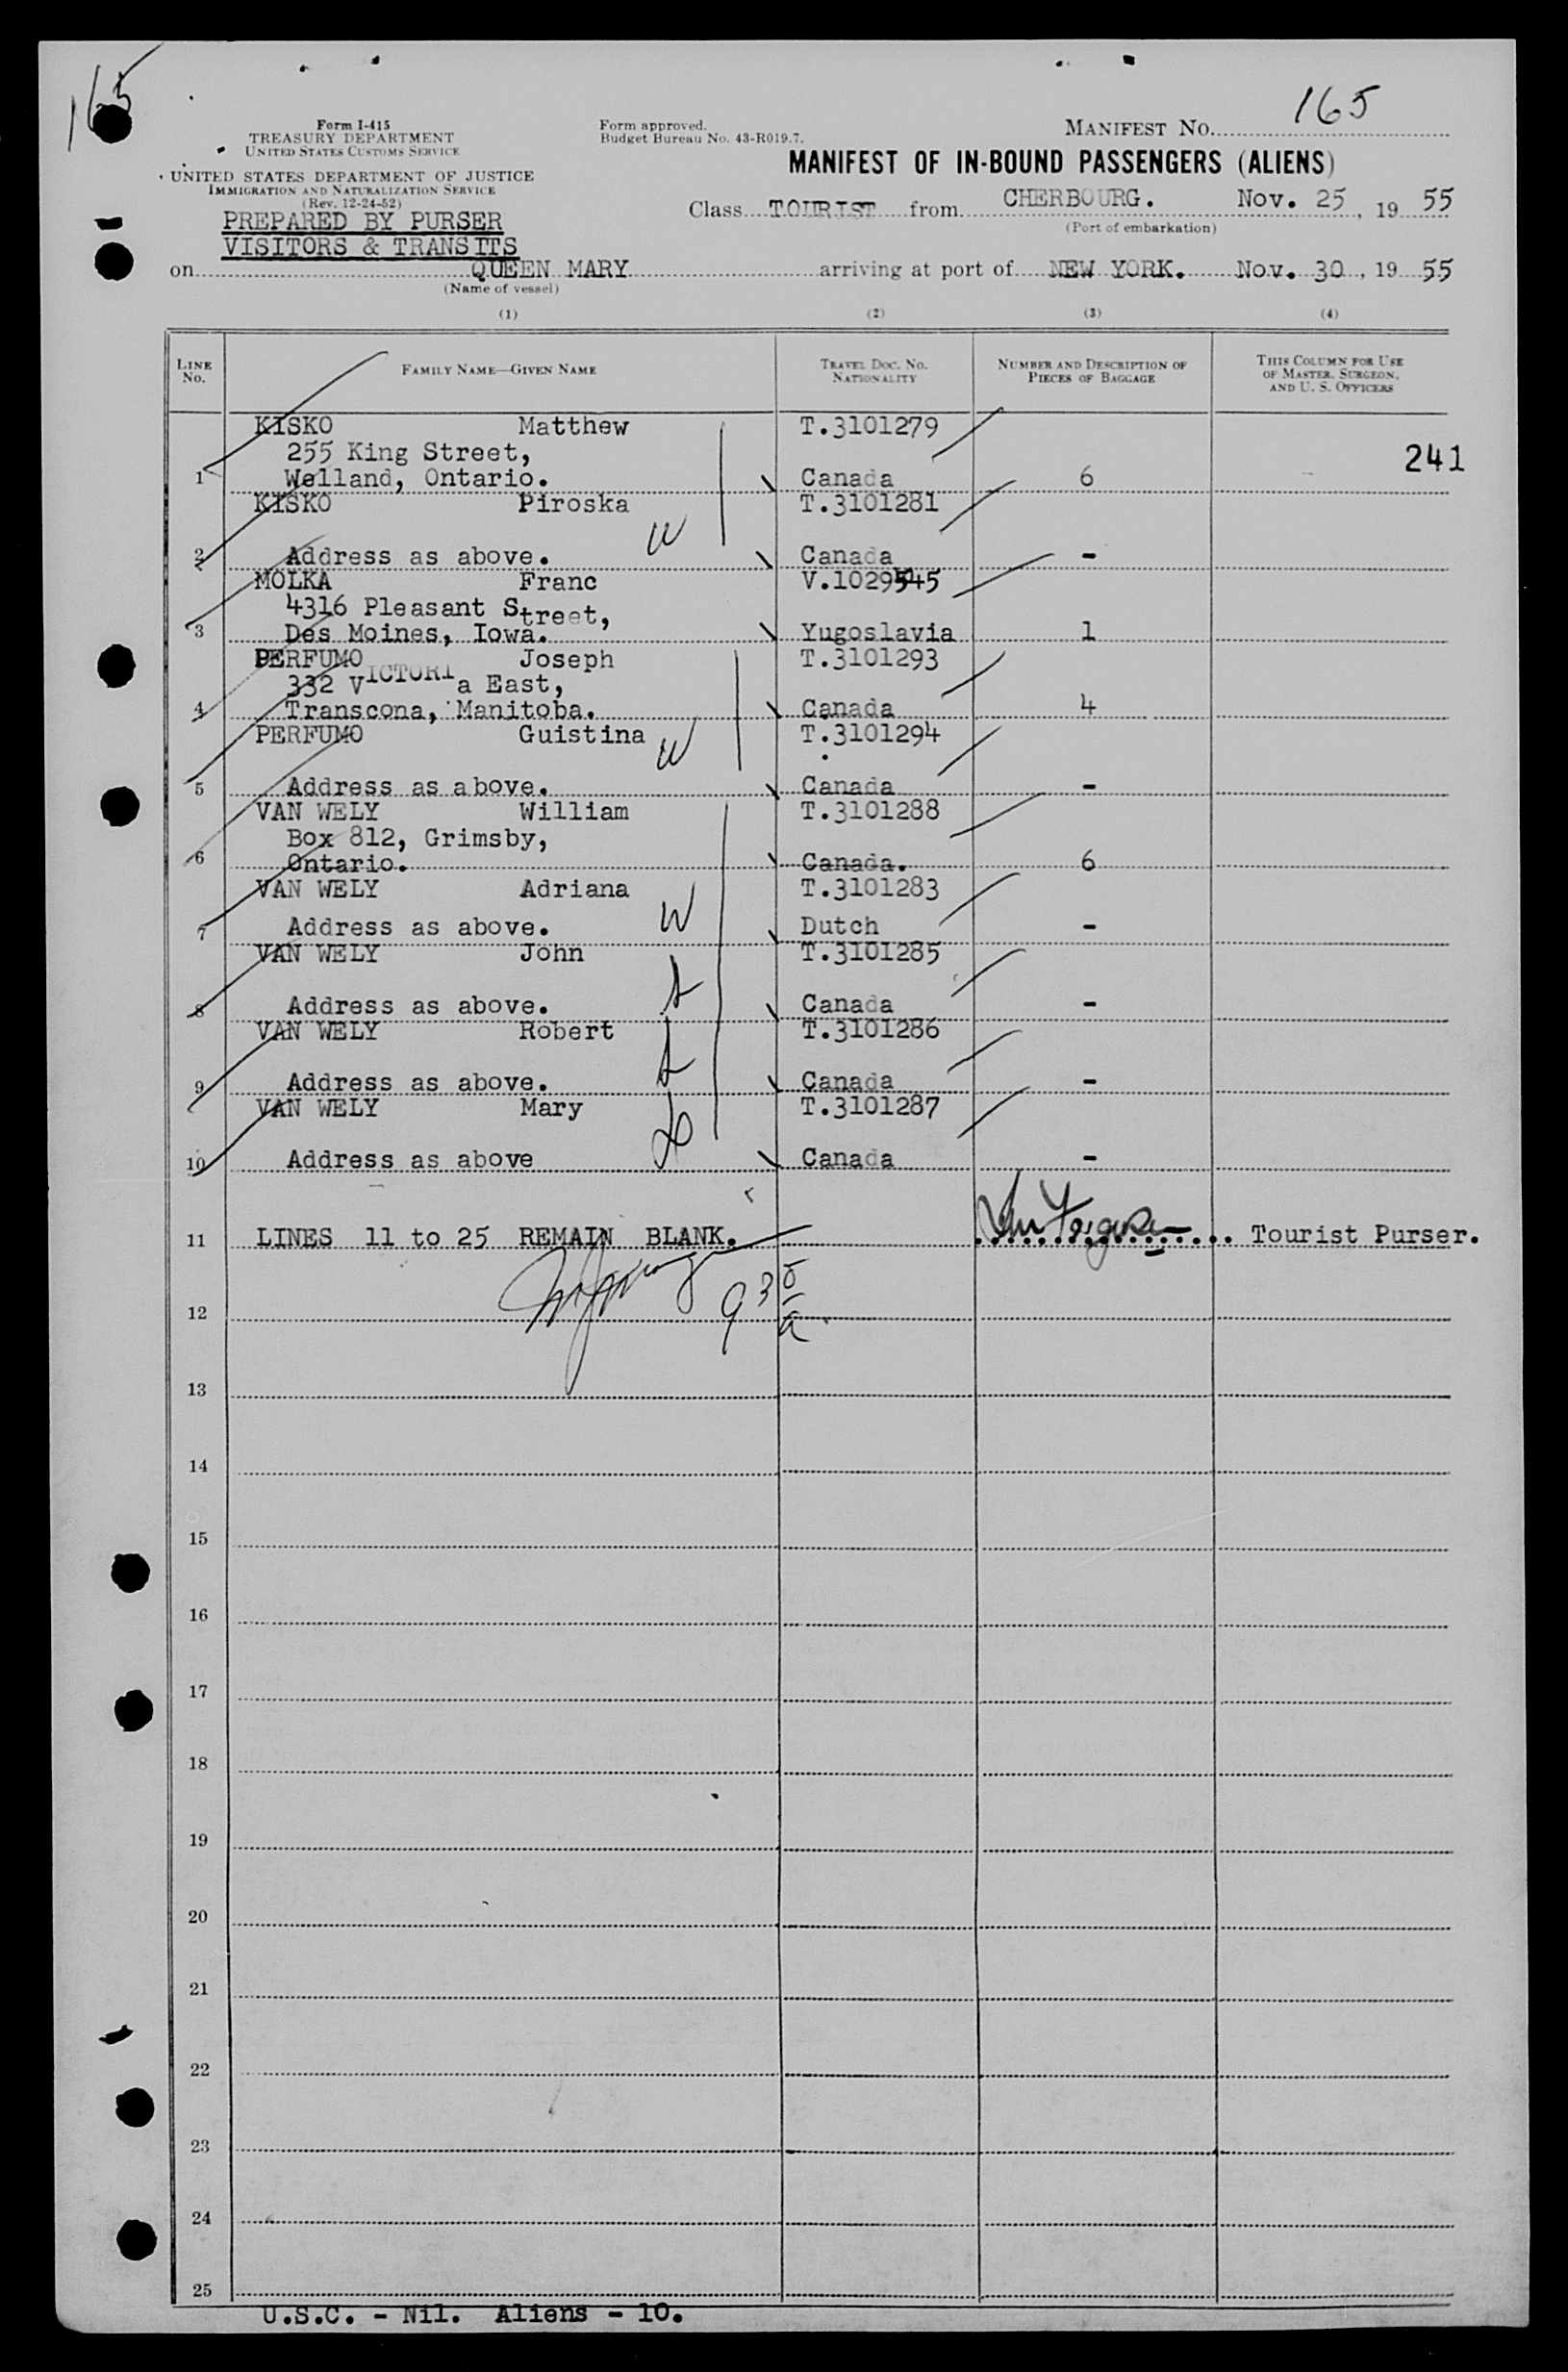 165
Form I-415
TREASURY DEPARTMENT
UNITED STATES CUSTOMS SERVICE
UNITED STATES DEPARTMENT OF JUSTICE
IMMIGRATION AND NATURALIZATION SERVICE
(Rev. 12-24-52)
PREPARED BY PURSER
VISITORS & TRANSITS
Form approved.
Budget Bureau No. 43-R019.7.
MANIFEST NO. 165
MANIFEST OF IN-BOUND PASSENGERS (ALIENS)
Class TOURIST from CHERBOURG. Nov. 25, 1955
(Port of embarkation)
on QUEEN MARY arriving at port of NEW YORK. Nov. 30, 1955
(Name of vessel)
(1) (2) (3) (4)
LINE No. FAMILY NAME—GIVEN NAME TRAVEL DOC. NO. NATIONALITY NUMBER AND DESCRIPTION OF PIECES OF BAGGAGE THIS COLUMN FOR USE OF MASTER, SURGEON, AND U. S. OFFICERS
KISKO Matthew T.3101279
255 King Street,
241
1 Welland, Ontario. Canada 6
KISKO Piroska T.3101281
W
2 Address as above. Canada -
MOLKA Franc V.1029545
4316 Pleasant Street,
3 Des Moines, Iowa. Yugoslavia 1
PERFUMO Joseph T.3101293
332 VICTORIa East,
4 Transcona, Manitoba. Canada 4
PERFUMO Guistina W T.3101294
5 Address as above. Canada -
VAN WELY William T.3101288
Box 812, Grimsby,
6 Ontario. Canada. 6
VAN WELY Adriana T.3101283
7 Address as above. W Dutch -
VAN WELY John T.3101285
8 Address as above. Canada -
VAN WELY Robert T.3101286
9 Address as above. Canada -
VAN WELY Mary T.3101287
10 Address as above Canada -
11 LINES 11 to 25 REMAIN BLANK. Tourist Purser.
12
13
14
15
16
17
18
19
20
21
22
23
24
25
U.S.C. - Nil. Aliens - 10.